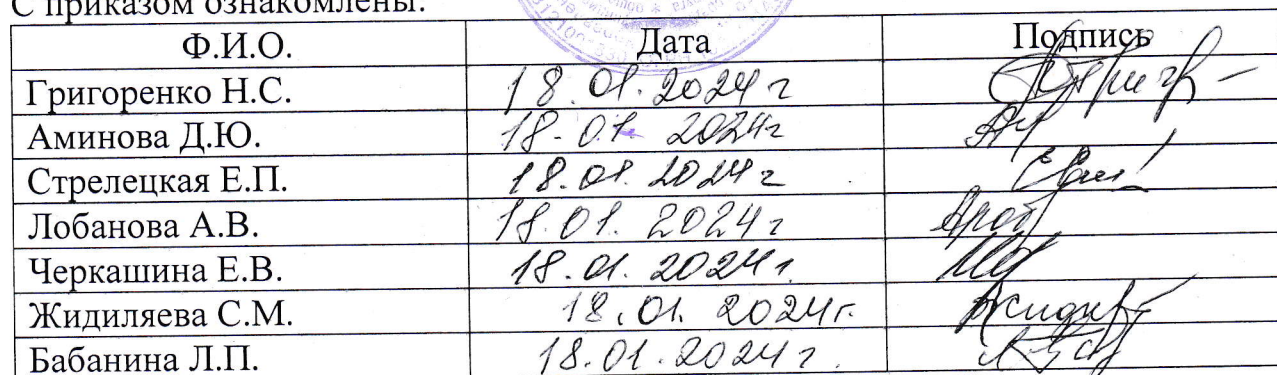 С приказом ознакомлены:
Ф.И.О. Дата Подпись
Григоренко Н.С. 18.01.2024 г
Аминова Д.Ю. 18.01.2024г
Стрелецкая Е.П. 18.01.2024 г
Лобанова А.В. 18.01.2024 г
Черкашина Е.В. 18.01.2024 г.
Жидиляева С.М. 18.01.2024г.
Бабанина Л.П. 18.01.2024 г.